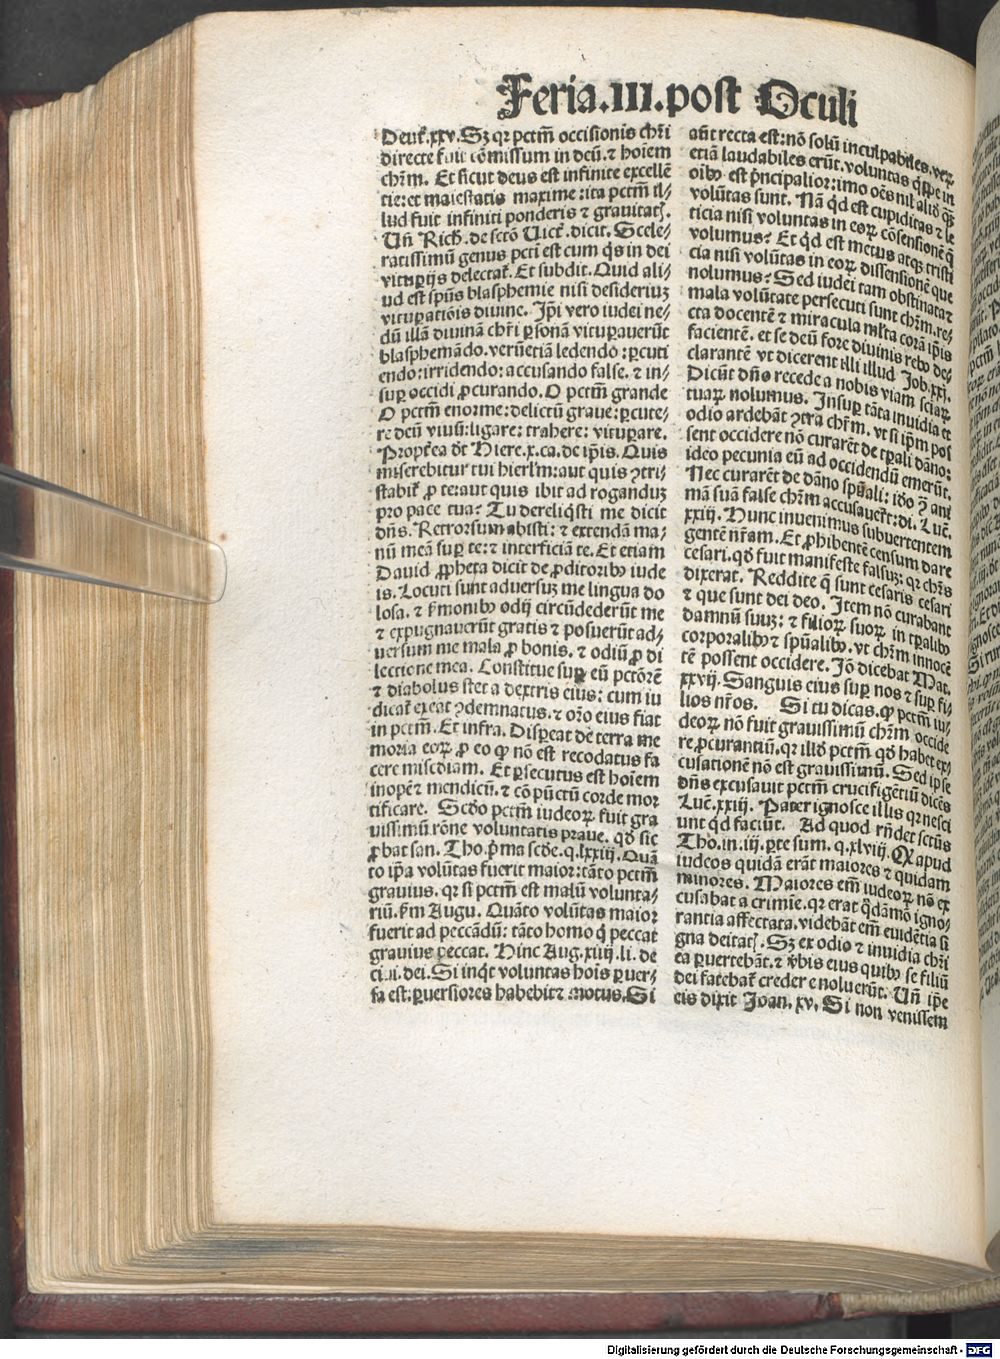 Feria.III.post Oculi
Deut̄.xxv. Sꝫ qꝛ pctm̄ occisionis chr̄i
directe fuit cōmissum in deū. ⁊ hoīem
chr̄m. Et sicut deus est infinite excellē
tie: et maiestatis maxime: ita pctm̄ il⸗
lud fuit infiniti ponderis ⁊ grauitatꝭ.
Un̄ Rich. de sctō Uict̄. dicit. Scele⸗
ratissimū genus pcti est cum qͥs in dei
vituꝑijs delectat̄. Et subdit. Quid ali⸗
ud est spūs blasphemie nisi desideriuꝫ
vituꝑatiōis diuine. Ip̄i vero iudei ne⸗
dū illā diuinā chr̄i ꝑsonā vituꝑauerūt
blasphemādo. verūetiā ledendo: ꝑcuti
endo: irridendo: accusando false. ⁊ in⸗
suꝑ occidi ꝓcurando. O pctm̄ grande
O pctm̄ enorme: delictū graue: ꝑcute⸗
re deū viuū: ligare: trahere: vituꝑare.
Propt̄ea dt̄ Hiere.x.ca. de ip̄is. Quis
miserebitur tui hierl'm: aut quis ↄtri⸗
stabit̄ ꝓ te: aut quis ibit ad roganduꝫ
pro pace tua? Tu dereliqͥsti me dicit
dn̄s. Retrorsum abisti: ⁊ extendā ma⸗
nū meā suꝑ te: ⁊ interficiā te. Et etiam
Dauid ꝓpheta dicit de ꝓditoribꝰ iude
is. Locuti sunt aduersuꝫ me lingua do
losa. ⁊ ẜmonibꝰ odij circūdederūt me
⁊ expugnauerūt gratis ⁊ posuerūt ad⸗
uersum me mala ꝓ bonis. ⁊ odiū ꝓ di
lectione mea. Constitue suꝑ eū pctōrē
⁊ diabolus stet a dextris eius: cum iu
dicat̄ exeat ↄdemnatus. ⁊ or̄o eius fiat
in pctm̄. Et infra. Disꝑeat de terra me
moria eoꝝ ꝓ eo ꝙ nō est recodatus fa
cere miscdiam. Et ꝑsecutus est hoīem
inopē ⁊ mendicū. ⁊ cōpūctū corde mor
tificare. Scd̄o pctm̄ iudeoꝝ fuit gra
uissimū rōne voluntatis praue. qd̄ sic
ꝓbat san. Tho. pͥma scd̄e. q.lxxiij. Quā
to ip̄a volūtas fuerit maior: tāto pctm̄
grauius. qꝛ si pctm̄ est malū volunta⸗
riū. ẜm Augu. Quāto volūtas maior
fuerit ad peccādū: tāto homo qͥ peccat
grauius peccat. Hinc Aug.xiiij.li. de
ciui. dei. Si inqͥt voluntas hoīs ꝑuer⸗
sa est: ꝑuersiores habebit motus. Si
aūt recta est: nō solū inculpabiles. veꝝ
etiā laudabiles erūt. voluntas qͥppe in
oībꝰ est pͥncipalior: imo oēs nil aliđ qͣꝫ
volūtas sunt. Nā qͥd est cupiditas ⁊ le
ticia nisi voluntas in eoꝝ cōsensionē qͥ
volumus? Et qͥd est metus atqꝫ tristi
cia nisi volūtas in eoꝝ dissensionē que
nolumus? Sed iudei tam obstinata ⁊
mala volūtate persecuti sunt chr̄m. re⸗
cta docentē ⁊ miracula ml'ta corā ip̄is
facientē. et se deū fore diuinis rebꝰ de⸗
clarantē vt dicerent illi illud Job.xxj.
Dicūt dn̄o recede a nobis viam sciaꝝ
tuaꝝ nolumus. Insuꝑ tāta inuidia et
odio ardebāt ↄtra chr̄m. vt si ip̄m pos
sent occidere nō curarēt de tꝑali dāno:
ideo pecunia eū ad occidendū emerūt.
Nec curarēt de dāno spūali: iđo ꝫ ani
mā suā false chr̄m accusauer̄t: vt. Luc̄.
xxiij. Hunc inuenimus subuertentem
gentē nr̄am. Et ꝓhibentē censum dare
cesari. qđ fuit manifeste falsuꝫ: qꝛ chr̄s
dixerat. Reddite qͣ sunt cesaris cesari
⁊ que sunt dei deo. Item nō curabant
damnū suuꝫ: ⁊ filioꝝ suoꝝ in tꝑalibꝰ
corporalibꝰ ⁊ spūalibꝰ. vt chr̄m innocē
tē possent occidere. Jō dicebat Mat.
xxvij. Sanguis eius suꝑ nos ⁊ suꝑ fi⸗
lios nr̄os. Si tu dicas. ꝙ pctm̄ iu⸗
deoꝝ nō fuit grauissimū chr̄m occide
re ꝓcurantiū. qꝛ illđ pctm̄ qđ habet ex⸗
cusationē nō est grauissimū. Sed ipse
dn̄s excusauit pctm̄ crucifigētiū dicēs
Luc̄.xxiij. Pater ignosce illis qꝛ nesci
unt qͥd faciūt. Ad quod rn̄det sctūs
Tho. in.iij. ꝑte sum. q.xlviij. Ꝙ apud
iudeos quidā erāt maiores ⁊ quidam
minores. Maiores em̄ iudeoꝝ nō ex
cusabat a crimīe. qꝛ erat qͣdāmō igno⸗
rantia affectata. videbāt em̄ euidētia si
gna deitatꝭ. Sꝫ ex odio ⁊ inuidia chr̄i
ea ꝑuertebāt. ⁊ v̄bis eius quibꝰ se filiū
dei fatebat̄ credere noluerūt. Un̄ ip̄e
eis dixit Joan.xv. Si non venissem
Digitalisierung gefördert durch die Deutsche Forschungsgemeinschaft - DFG